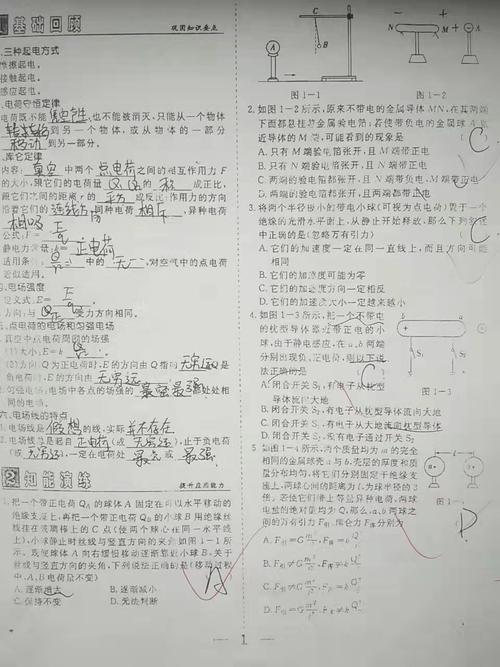 基础回顾 巩固知识要点
三种起电方式
摩擦起电。
接触起电。
感应起电。
电荷守恒定律
电荷既不能 创生 ,也不能被消灭,只能从一个物体
转移 到另一个物体,或从物体的一部分
移动 到另一部分。
库仑定律
内容: 真空 中两个 点电荷 之间的相互作用力 F
的大小,跟它们的电荷量 的 积 成正比,
跟它们的距离 r 的 平方 成反比;作用力的方向
沿着它们的 连线方向 同种电荷 相斥 ,异种电荷
相吸
公式:F=
静电力常量
适用条件: 中的 ,对空气中的点电荷
近似适用。
电场强度
定义式:E=
方向:与 受力方向相同。
点电荷的电场和匀强电场
真空中点电荷周围的场强
(1)大小:E=k
(2)方向:Q 为正电荷时,E 的方向由 Q 指向 无穷远 ;Q 是
负电荷时,E 的方向由 无穷远
匀强电场:电场中各点的场强的 处处相
同的电场。
六、电场线的特点
电场线是 假想 的线,实际 并不存在
电场线总是起自 正电荷 (或 无穷远 ),止于负电荷
(或 无穷远 ),一定在电荷处 或
知能演练 提升应用能力
1.把一个带正电荷 QA 的球体 A 固定在可以水平移动的
绝缘支座上,再把一个带正电荷 QB 的小球 B 用绝缘丝
线挂在玻璃棒上的 C 点(使两个球心在同一水平线
上),小球静止时丝线与竖直方向的夹角如图 1-1 所
示。现使球体 A 向右缓慢移动逐渐靠近小球 B,关于
丝线与竖直方向的夹角,下列说法正确的是(移动过程
中,A、B 电荷量不变) A
A.逐渐增大 B.逐渐减小
C.保持不变 D.无法判断
C
A
B
图 1-1
M
N
A
图 1-2
2.如图 1-2 所示,原来不带电的金属导体 MN,在其两端
下面都悬挂着金属验电箔;若使带负电的金属球 A 靠
近导体的 M 端,可能看到的现象是
A.只有 M 端验电箔张开,且 M 端带正电
B.只有 N 端验电箔张开,且 N 端带正电
C.两端的验电箔都张开,且 N 端带负电,M 端带正电
D.两端的验电箔都张开,且两端都带正电
C
3.将两个半径极小的带电小球(可视为点电荷)置于一个
绝缘的光滑水平面上,从静止开始释放,那么下列叙述
中正确的是(忽略万有引力)
A.它们的加速度一定在同一直线上,而且方向可能
相同
B.它们的加速度可能为零
C.它们的加速度方向一定相反
D.它们的加速度大小一定越来越小
C
4.如图 1-3 所示,把一个不带电
的枕型导体靠近带正电的小
球,由于静电感应,在 a、b 两端
分别出现负、正电荷,则以下说
法正确的是
A.闭合开关 S1,有电子从枕型
导体流向大地
B.闭合开关 S2,有电子从枕型导体流向大地
C.闭合开关 S1,有电子从大地流向枕型导体
D.闭合开关 S2,没有电子通过开关 S2
C
S1
S2
图 1-3
5.如图 1-4 所示,两个质量均为 m 的完全
相同的金属球壳 a 与 b,壳层的厚度和质
量分布均匀,将它们分别固定于绝缘支
座上,两球心间的距离为 l,为球半径的 3
倍。若使它们带上等量异种电荷,两球
电荷量的绝对值均为 Q,那么,a、b 两球之
间的万有引力 F引、库仑力 F库分别为
A.F引=G m²/l²,F库=k Q²/l²
B.F引≠G m²/l²,F库≠k Q²/l²
C.F引≠G m²/l²,F库=k Q²/l²
D.F引=G m²/l²,F库≠k Q²/l²
D
1